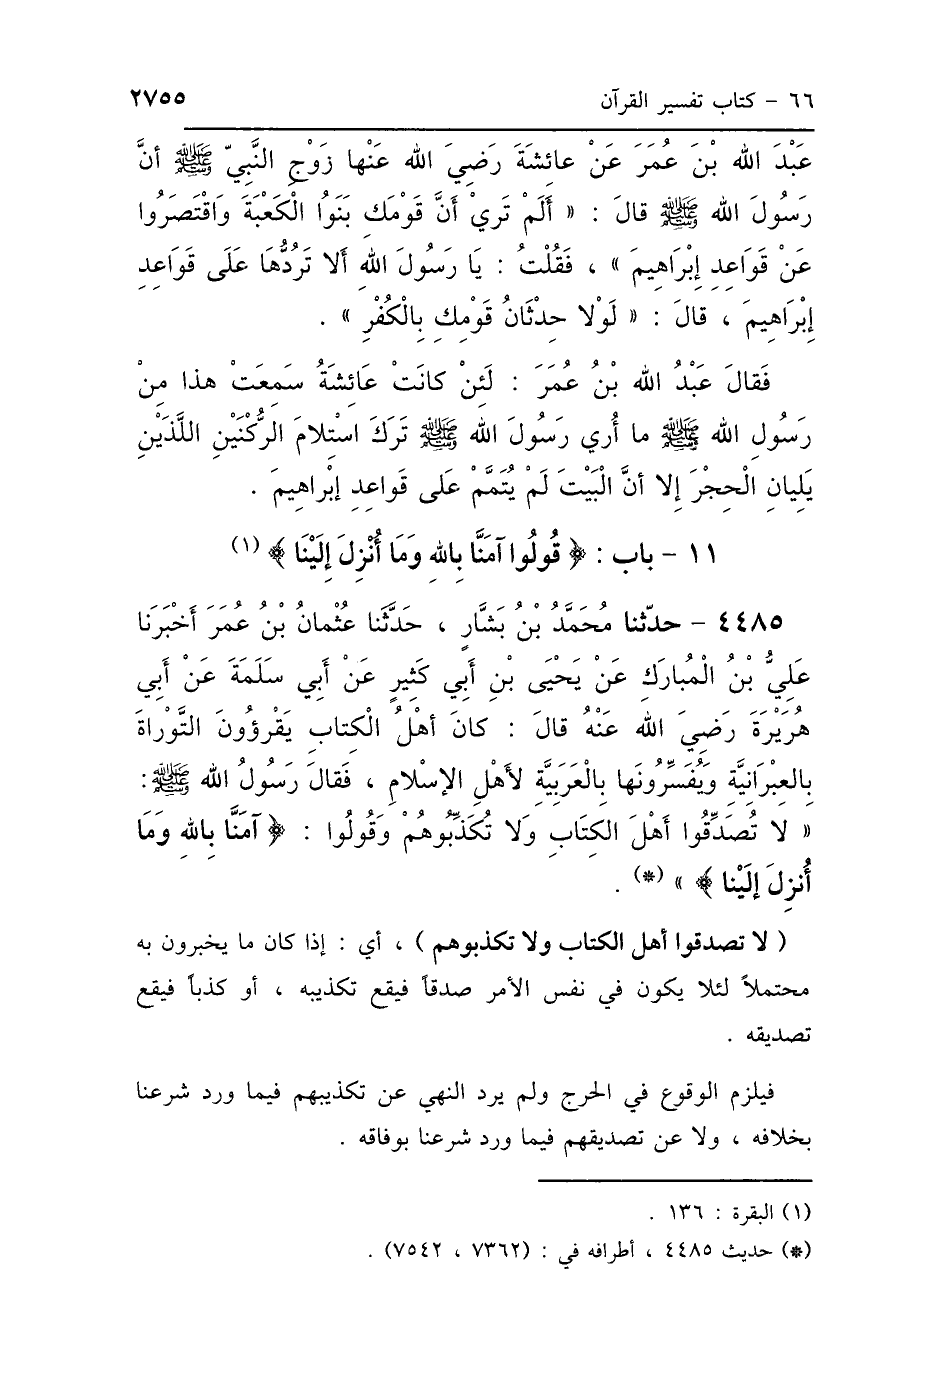 ٦٦ - كتاب تفسير القرآن ٢٧٥٥
عَبْدَ الله بْنَ عُمَرَ عَنْ عائِشَةَ رَضِيَ الله عَنْها زَوْجِ النَّبِيّ ﷺ أنَّ
رَسُولَ الله ﷺ قالَ : « أَلَمْ تَرِيْ أَنَّ قَوْمَكِ بَنَوُا الْكَعْبَةَ وَاقْتَصَرُوا
عَنْ قَوَاعِدِ إبْرَاهِيمَ » ، فَقُلْتُ : يَا رسُولَ اللهِ ألا تَرُدُّهَا عَلَى قَوَاعِدِ
إبْرَاهِيمَ ، قالَ : « لَوْلا حِدْثَانُ قَوْمِكِ بِالْكُفْرِ » .
فَقالَ عَبْدُ الله بْنُ عُمَرَ : لَئِنْ كانَتْ عَائِشَةُ سَمِعَتْ هذا مِنْ
رَسُولِ الله ﷺ ما أُرِي رسُولَ الله ﷺ تَرَكَ اسْتِلامَ الرُّكْنَيْنِ اللَّذَيْنِ
يَلِيانِ الْحِجْرَ إلا أنَّ الْبَيْتَ لَمْ يُتَمَّمْ عَلى قواعِدِ إبْراهِيمَ .
١١ - باب : ﴿ قُولُوا آمَنَّا بِاللهِ وَمَا أُنْزِلَ إِلَيْنَا ﴾ (١)
٤٤٨٥ - حدّثنا مُحَمَّدُ بْنُ بَشَّارٍ ، حَدَّثَنا عُثْمانُ بْنُ عُمَرَ أَخْبَرَنا
عَلِيُّ بْنُ الْمُبارَكِ عَنْ يَحْيَى بْنِ أَبي كَثِيرٍ عَنْ أَبِي سَلَمَةَ عَنْ أَبِي
هُرَيْرَةَ رَضِيَ الله عَنْهُ قالَ : كانَ أهْلُ الْكتابِ يَقْرؤُونَ التَّوْراةَ
بِالعِبْرَانِيَّةِ وَيُفَسِّرُونَها بِالْعَرَبِيَّةِ لأهْلِ الإسْلامِ ، فَقالَ رَسُولُ الله ﷺ:
« لا تُصَدِّقُوا أهْلَ الكِتَابِ وَلا تُكَذِّبُوهُمْ وَقُولُوا : ﴿ آمَنَّا بِاللهِ وَمَا
أُنزِلَ إِلَيْنا ﴾ » (*) .
( لا تصدقوا أهل الكتاب ولا تكذبوهم ) ، أي : إذا كان ما يخبرون به
محتملاً لئلا يكون في نفس الأمر صدقاً فيقع تكذيبه ، أو كذباً فيقع
تصديقه .
فيلزم الوقوع في الحرج ولم يرد النهي عن تكذيبهم فيما ورد شرعنا
بخلافه ، ولا عن تصديقهم فيما ورد شرعنا بوفاقه .
(١) البقرة : ١٣٦ .
(*) حديث ٤٤٨٥ ، أطرافه في : (٧٣٦٢ ، ٧٥٤٢) .